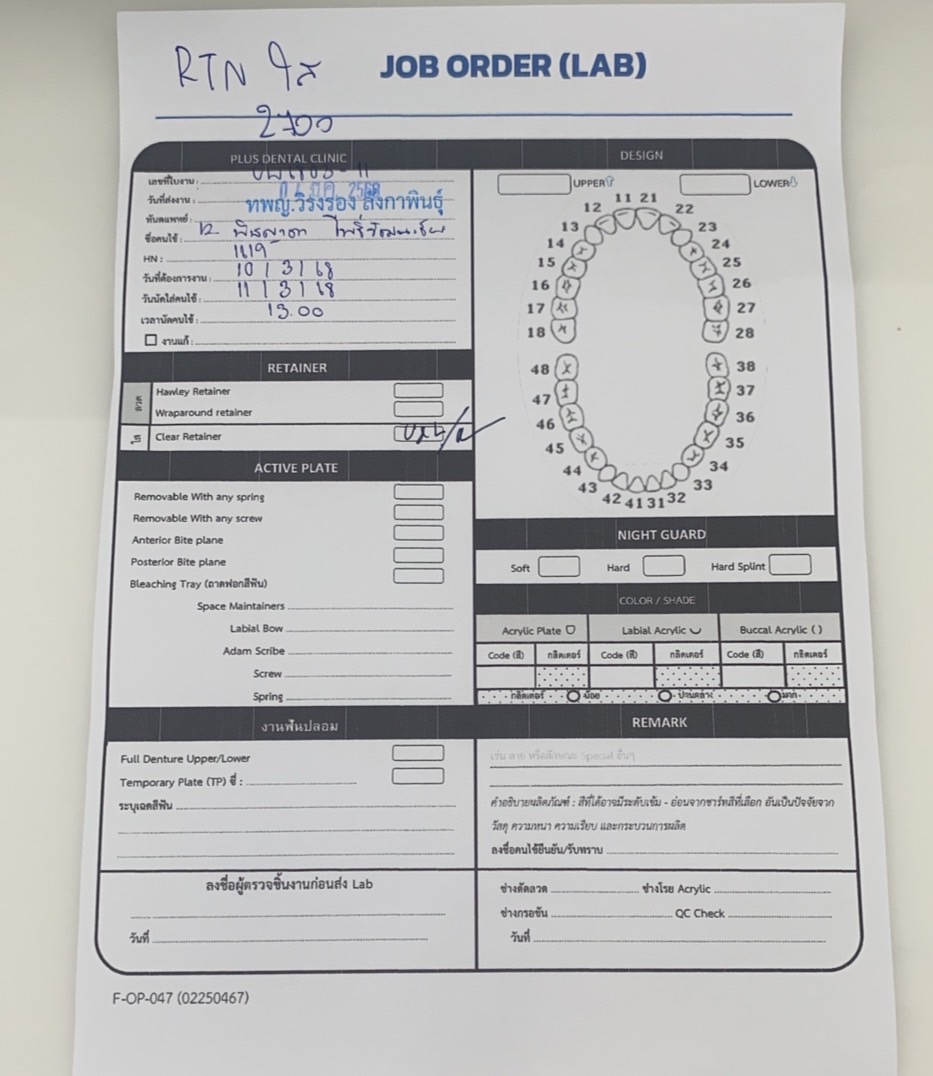 RTN ใส
JOB ORDER (LAB)
2700
PLUS DENTAL CLINIC
เลขที่ใบงาน :
วันที่ส่งงาน : 2568
ทันตแพทย์ : ทพญ.
ชื่อคนไข้ :
HN : 1119
วันที่ต้องการงาน : 10 / 3 / 68
วันนัดใส่คนไข้ : 11 / 3 / 68
เวลานัดคนไข้ : 13.00
งานแก้ :
RETAINER
ลวด
Hawley Retainer
Wraparound retainer
ใส
Clear Retainer
ACTIVE PLATE
Removable With any spring
Removable With any screw
Anterior Bite plane
Posterior Bite plane
Bleaching Tray (ถาดฟอกสีฟัน)
Space Maintainers
Labial Bow
Adam Scribe
Screw
Spring
งานฟันปลอม
Full Denture Upper/Lower
Temporary Plate (TP) ซี่ :
ระบุเฉดสีฟัน
ลงชื่อผู้ตรวจชิ้นงานก่อนส่ง Lab
วันที่
DESIGN
UPPER
LOWER
11 21
12 22
13 23
14 24
15 25
16 26
17 27
18 28
48 38
47 37
46 36
45 35
44 34
43 33
42 41 31 32
NIGHT GUARD
Soft Hard Hard Splint
COLOR / SHADE
Acrylic Plate Labial Acrylic Buccal Acrylic ( )
Code (สี) กลิตเตอร์ Code (สี) กลิตเตอร์ Code (สี) กลิตเตอร์
กลิตเตอร์ น้อย ปานกลาง มาก
REMARK
เช่น ลาย หรือลักษณะ Special อื่นๆ
คำอธิบายผลิตภัณฑ์ : สีที่ได้อาจมีระดับเข้ม - อ่อนจากชาร์ทสีที่เลือก อันเป็นปัจจัยจาก
วัสดุ ความหนา ความเรียบ และกระบวนการผลิต
ลงชื่อคนไข้ยืนยัน/รับทราบ
ช่างดัดลวด ช่างโรย Acrylic
ช่างกรอขัน QC Check
วันที่
F-OP-047 (02250467)